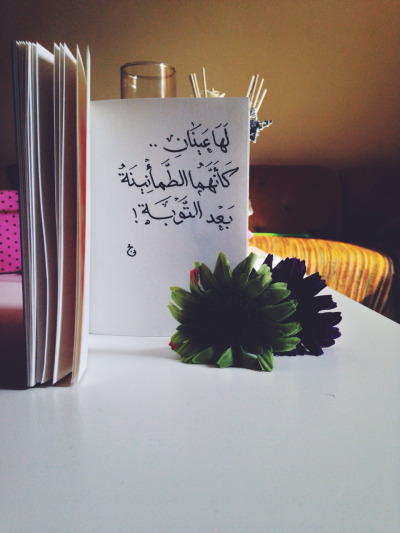 لَهَا عَينَانِ ..
كَأنَّهُمَا الطَّمأنِينَةُ
بَعد التَّوبَةِ !